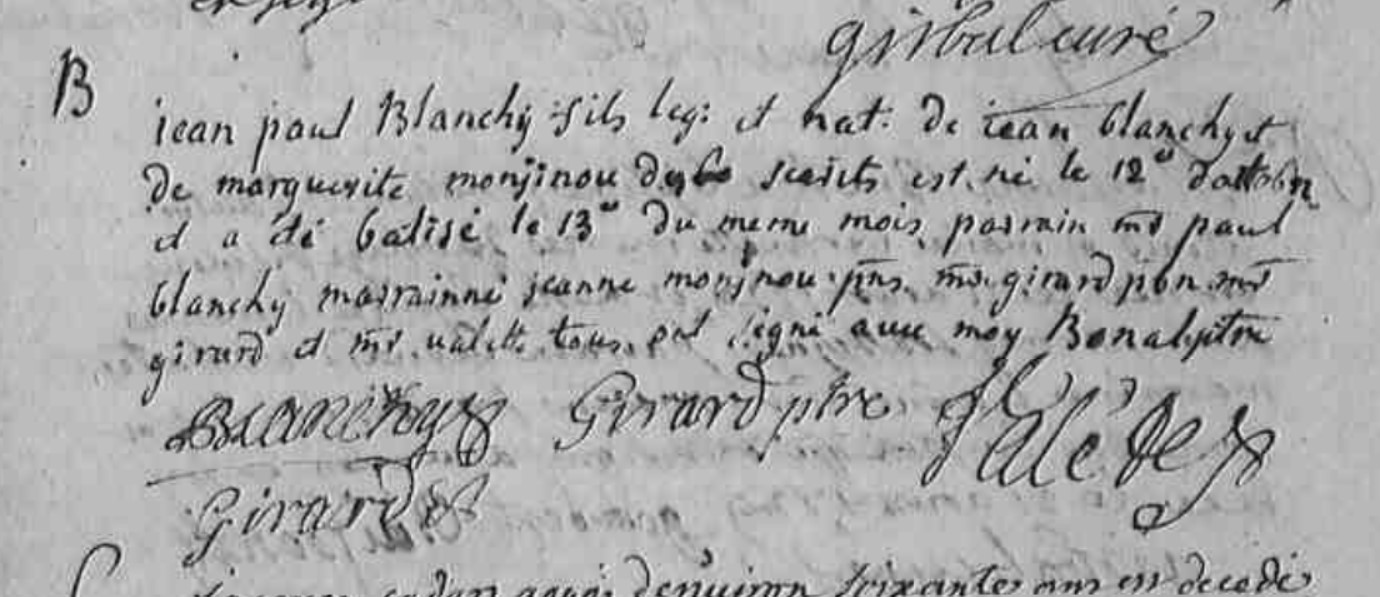 curé
B
jean paul Blanchy fils leg: et nat: de jean blanchy et
de marguerite monjinou est né le 12e d'attobre
et a été batisé le 13e du meme mois, parrain mr paul
blanchy marrainne jeanne monjnou pns. mr girard mr
girard et mr valett. tous ont signé avec moy Bonal ptre
Blanchy Girard ptre
Girard
denuiron soixante ans est decedé